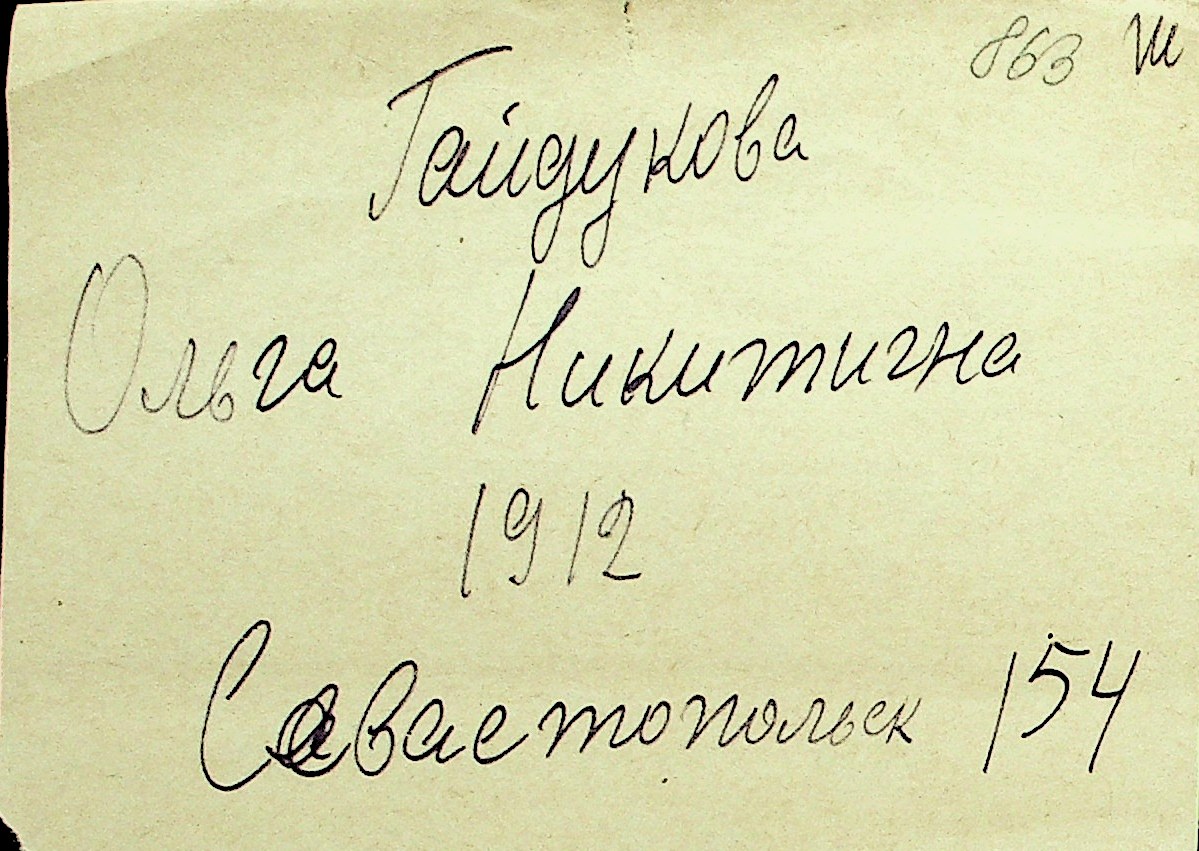 863 Ш
Гайдукова
Ольга Никитигна
1912
Севастопольск 154